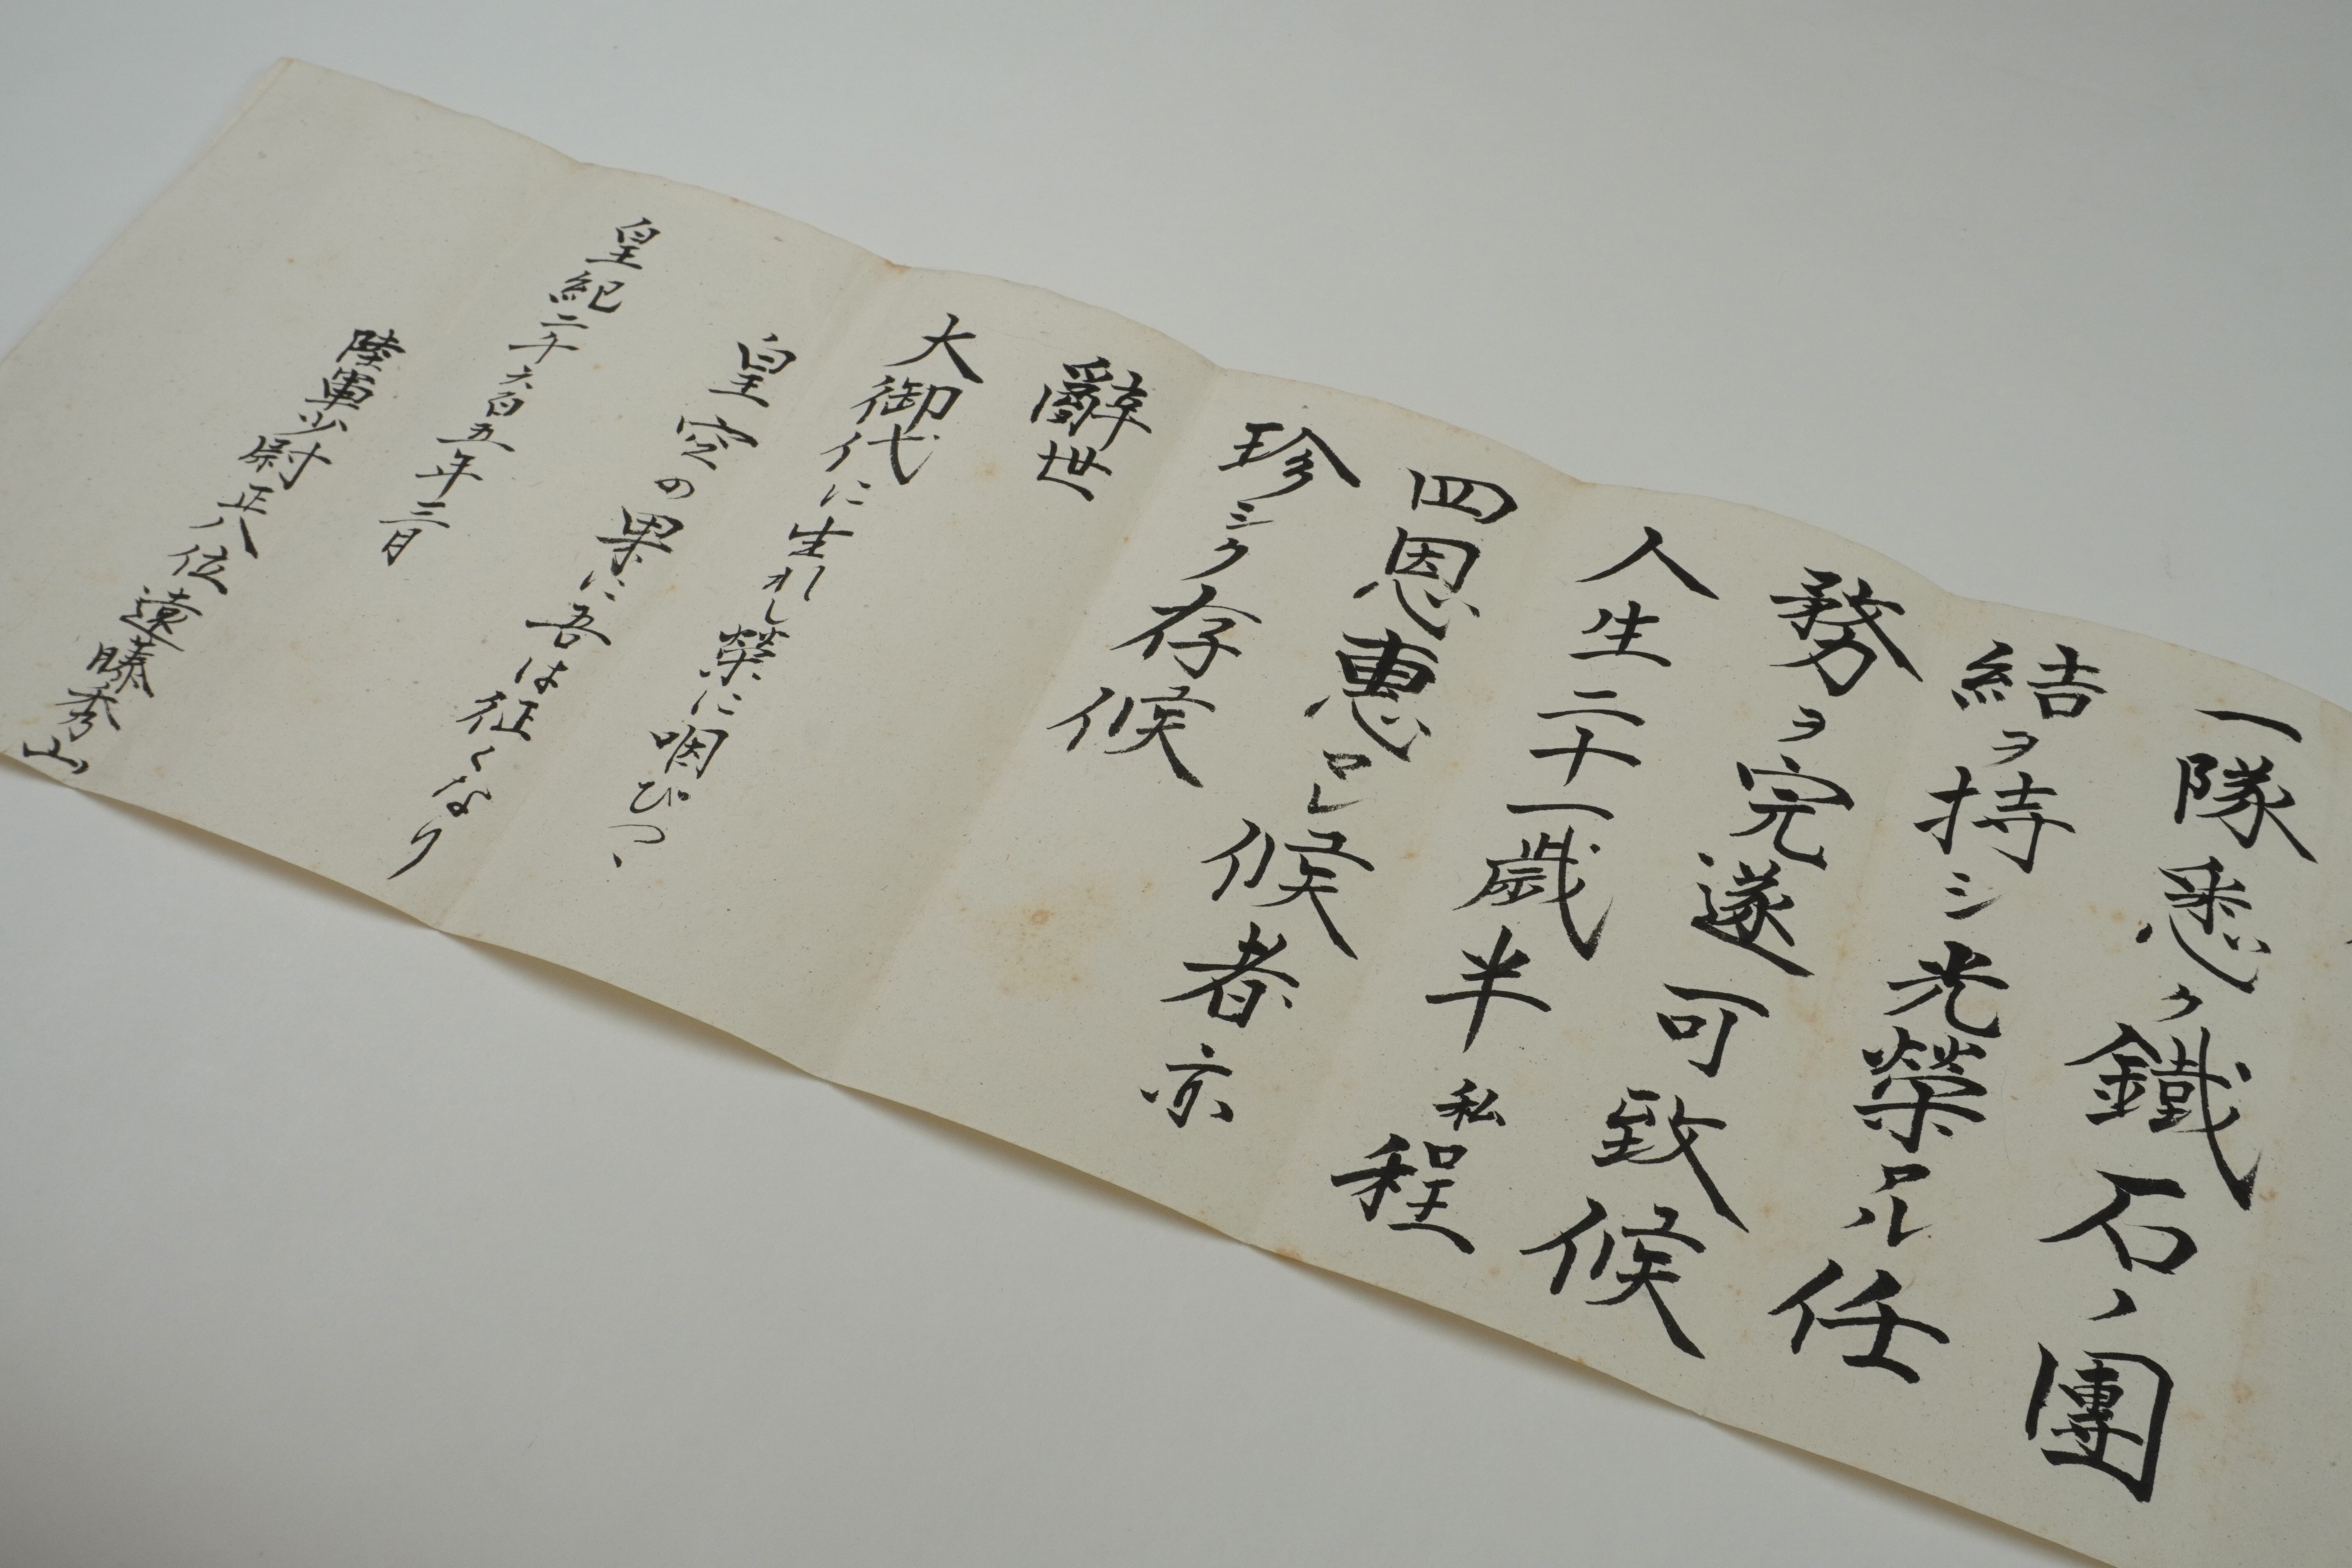 一隊悉ク鐵石ノ團
結ヲ持シ光榮アル任
務ヲ完遂可致候
人生二十一歳半私程
四恩惠マレ候者亦
珍シク存候
辭世
大御代に生れし榮に咽びつゝ
皇空の果に吾は征くなり
皇紀二千六百五年三月
陸軍少尉正八位遠藤秀山